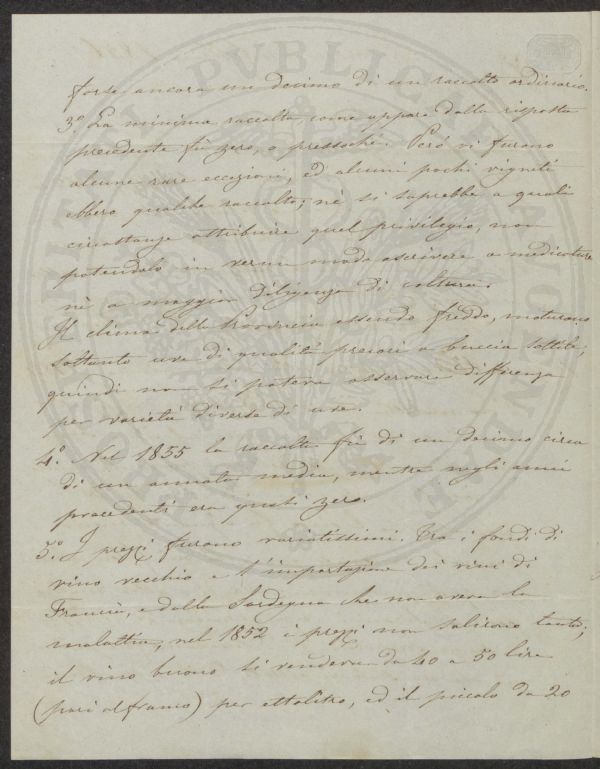 forse ancora un decimo di un raccolto ordinario.
3.° La minima raccolta, come appare dalla risposta
precedente fù zero, o pressochè. Però vi furono
alcune rare eccezioni, ed alcuni pochi vigneti
ebbero qualche raccolto; nè si saprebbe a quali
circostanze attribuire quel privilegio, non
potendolo in verun modo ascrivere a medicature
nè a maggior diligenza di coltura.
Il clima della Provincia essendo freddo, maturano
soltanto uve di qualità precoci a buccia sottile,
quindi non si poteva osservare differenza
per varietà diverse di uve.
4.° Nel 1855 la raccolta fù di un decimo circa
di un annata media, mentre negli anni
precedenti era quasi zero.
5.° I prezzi furono variatissimi. Tra i fondi di
vino vecchio e l'importazione dei vini di
Francia, e della Sardegna che non aveva la
malattia, nel 1852 i prezzi non salirono tanto;
il vino buono si vendeva da 40 a 50 lire
(pari al franco) per ettolitro, ed il piccolo da 20